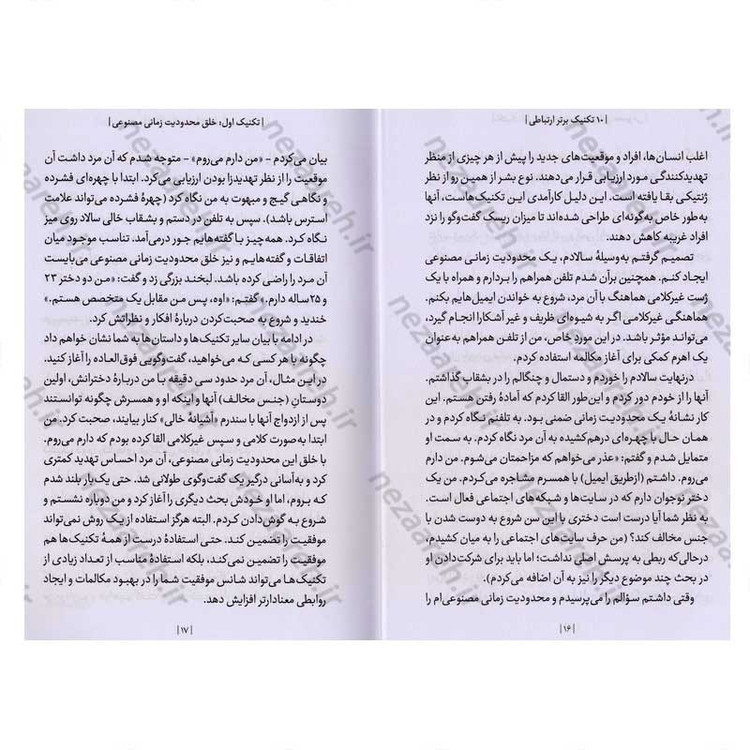 | ۱۰ تکنیک برتر ارتباطی |
اغلب انسان‌ها، افراد و موقعیت‌های جدید را پیش از هر چیزی از منظر
تهدیدکنندگی مورد ارزیابی قرار می‌دهند. نوع بشر از همین رو از نظر
ژنتیکی بقا یافته است. این دلیل کارآمدی این تکنیک‌هاست، آنها
به‌طور خاص به‌گونه‌ای طراحی شده‌اند تا میزان ریسک گفت‌وگو را نزد
افراد غریبه کاهش دهند.
تصمیم گرفتم به‌وسیلهٔ سالادم، یک محدودیت زمانی مصنوعی
ایجاد کنم. همچنین برآن شدم تلفن همراهم را بردارم و همراه با یک
ژست غیرکلامی هماهنگ با آن مرد، شروع به خواندن ایمیل‌هایم بکنم.
هماهنگی غیرکلامی اگر به شیوه‌ای ظریف و غیر آشکارا انجام گیرد،
می‌تواند مؤثر باشد. در این مورد خاص، من از تلفن همراهم به‌عنوان
یک اهرم کمکی برای آغاز مکالمه استفاده کردم.
درنهایت سالادم را خوردم و دستمال و چنگالم را در بشقاب گذاشتم.
آنها را از خودم دور کردم و این‌طور القا کردم که آمادهٔ رفتن هستم. این
کار نشانهٔ یک محدودیت زمانی ضمنی بود. به تلفنم نگاه کردم و در
همان حال با چهره‌ای درهم‌کشیده به آن مرد نگاه کردم. به سمت او
متمایل شدم و گفتم: «عذر می‌خواهم که مزاحمتان می‌شوم. من دارم
می‌روم. داشتم (ازطریق ایمیل) با همسرم مشاجره می‌کردم. من یک
دختر نوجوان دارم که در سایت‌ها و شبکه‌های اجتماعی فعال است.
به نظر شما آیا درست است دختری با این سن شروع به دوست شدن با
جنس مخالف کند؟ (من حرف سایت‌های اجتماعی را به میان کشیدم،
درحالی‌که ربطی به پرسش اصلی نداشت؛ اما باید برای شرکت‌دادن او
در بحث چند موضوع دیگر را نیز به آن اضافه می‌کردم).
وقتی داشتم سؤالم را می‌پرسیدم و محدودیت زمانی مصنوعی‌ام را
| ۱۶ |
| تکنیک اول: خلق محدودیت زمانی مصنوعی |
بیان می‌کردم - «من دارم می‌روم» - متوجه شدم که آن مرد داشت آن
موقعیت را از نظر تهدیدزا بودن ارزیابی می‌کرد. ابتدا با چهره‌ای فشرده
و نگاهی گیج و مبهوت به من نگاه کرد (چهرهٔ فشرده می‌تواند علامت
استرس باشد). سپس به تلفن در دستم و بشقاب خالی سالاد روی میز
نگاه کرد. همه‌چیز با گفته‌هایم جور درمی‌آمد. تناسب موجود میان
اتفاقات و گفته‌هایم و نیز خلق محدودیت زمانی مصنوعی می‌بایست
آن مرد را راضی کرده باشد. لبخند بزرگی زد و گفت: «من دو دختر ۲۳
و ۲۵ساله دارم.» گفتم: «اوه، پس من مقابل یک متخصص هستم.»
خندید و شروع به صحبت‌کردن دربارهٔ افکار و نظراتش کرد.
در ادامه با بیان سایر تکنیک‌ها و داستان‌ها به شما نشان خواهم داد
چگونه با هر کسی که می‌خواهید، گفت‌وگویی فوق‌العاده را آغاز کنید.
در این مثال، آن مرد حدود سی دقیقه با من دربارهٔ دخترانش، اولین
دوستانِ (جنس مخالف) آنها و اینکه او و همسرش چگونه توانستند
پس از ازدواج آنها با سندرم «آشیانهٔ خالی» کنار بیایند، صحبت کرد. من
ابتدا به‌صورت کلامی و سپس غیرکلامی القا کرده بودم که دارم می‌روم.
با خلق این محدودیت زمانی مصنوعی، آن مرد احساس تهدید کمتری
کرد و به‌آسانی درگیر یک گفت‌وگوی طولانی شد. حتی یک‌بار بلند شدم
که بروم، اما او خودش بحث دیگری را آغاز کرد و من دوباره نشستم و
شروع به گوش‌دادن کردم. البته هرگز استفاده از یک روش نمی‌تواند
موفقیت را تضمین کند. حتی استفادهٔ درست از همهٔ تکنیک‌ها هم
موفقیت را تضمین نمی‌کند، بلکه استفادهٔ مناسب از تعداد زیادی از
تکنیک‌ها می‌تواند شانس موفقیت شما را در بهبود مکالمات و ایجاد
روابطی معنادارتر افزایش دهد.
| ۱۷ |
nezaareh.ir